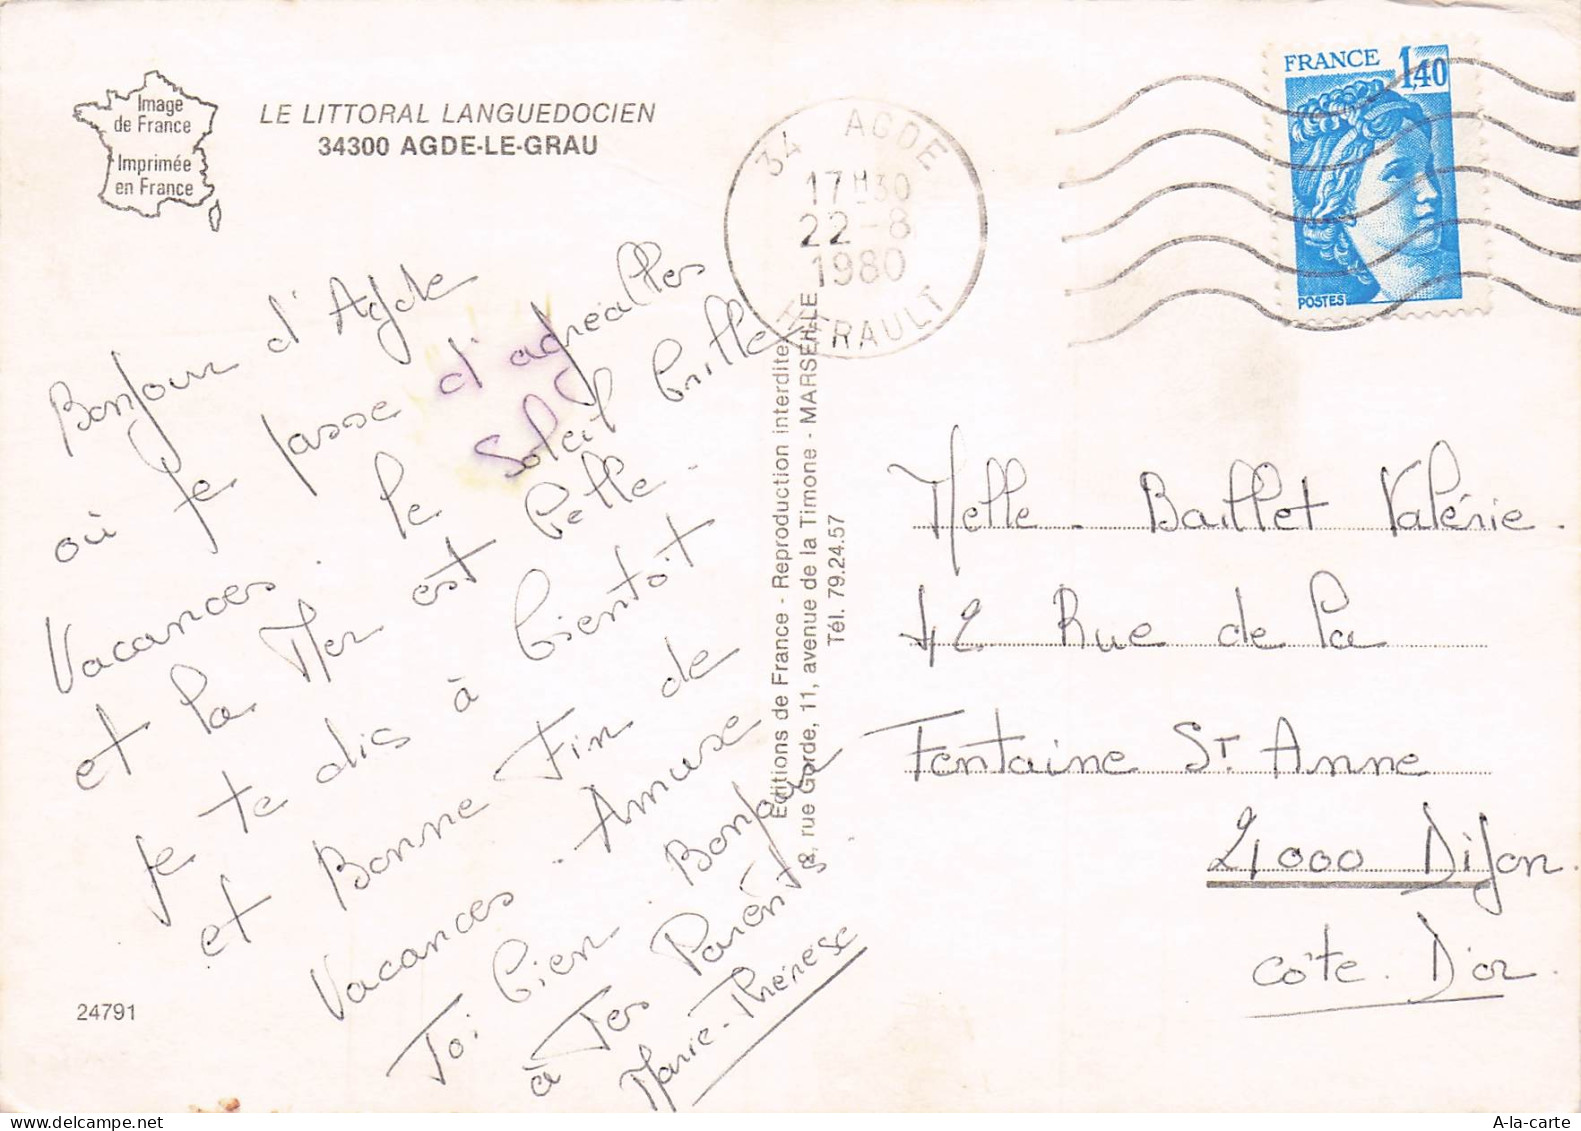 Image
de France
Imprimée
en France
LE LITTORAL LANGUEDOCIEN
34300 AGDE-LE-GRAU
34 AGDE
17H30
22-8
1980
HERAULT
FRANCE 1,40
POSTES
Bonjour d'Agde
où je passe d'agréables
Vacances. le Soleil brille
et la Mer est belle.
je te dis à bientôt
et Bonne Fin de
Vacances. Amuse
Toi bien. Bonjour
à Tes Parents
Marie-Thérèse
Editions de France - Reproduction interdite
2, rue Gorde, 11, avenue de la Timone - MARSEILLE
Tél. 79.24.57
Melle. Baillet Valérie.
42 Rue de la
Fontaine St. Anne
21000 Dijon.
côte. D'or.
24791
A-la-carte